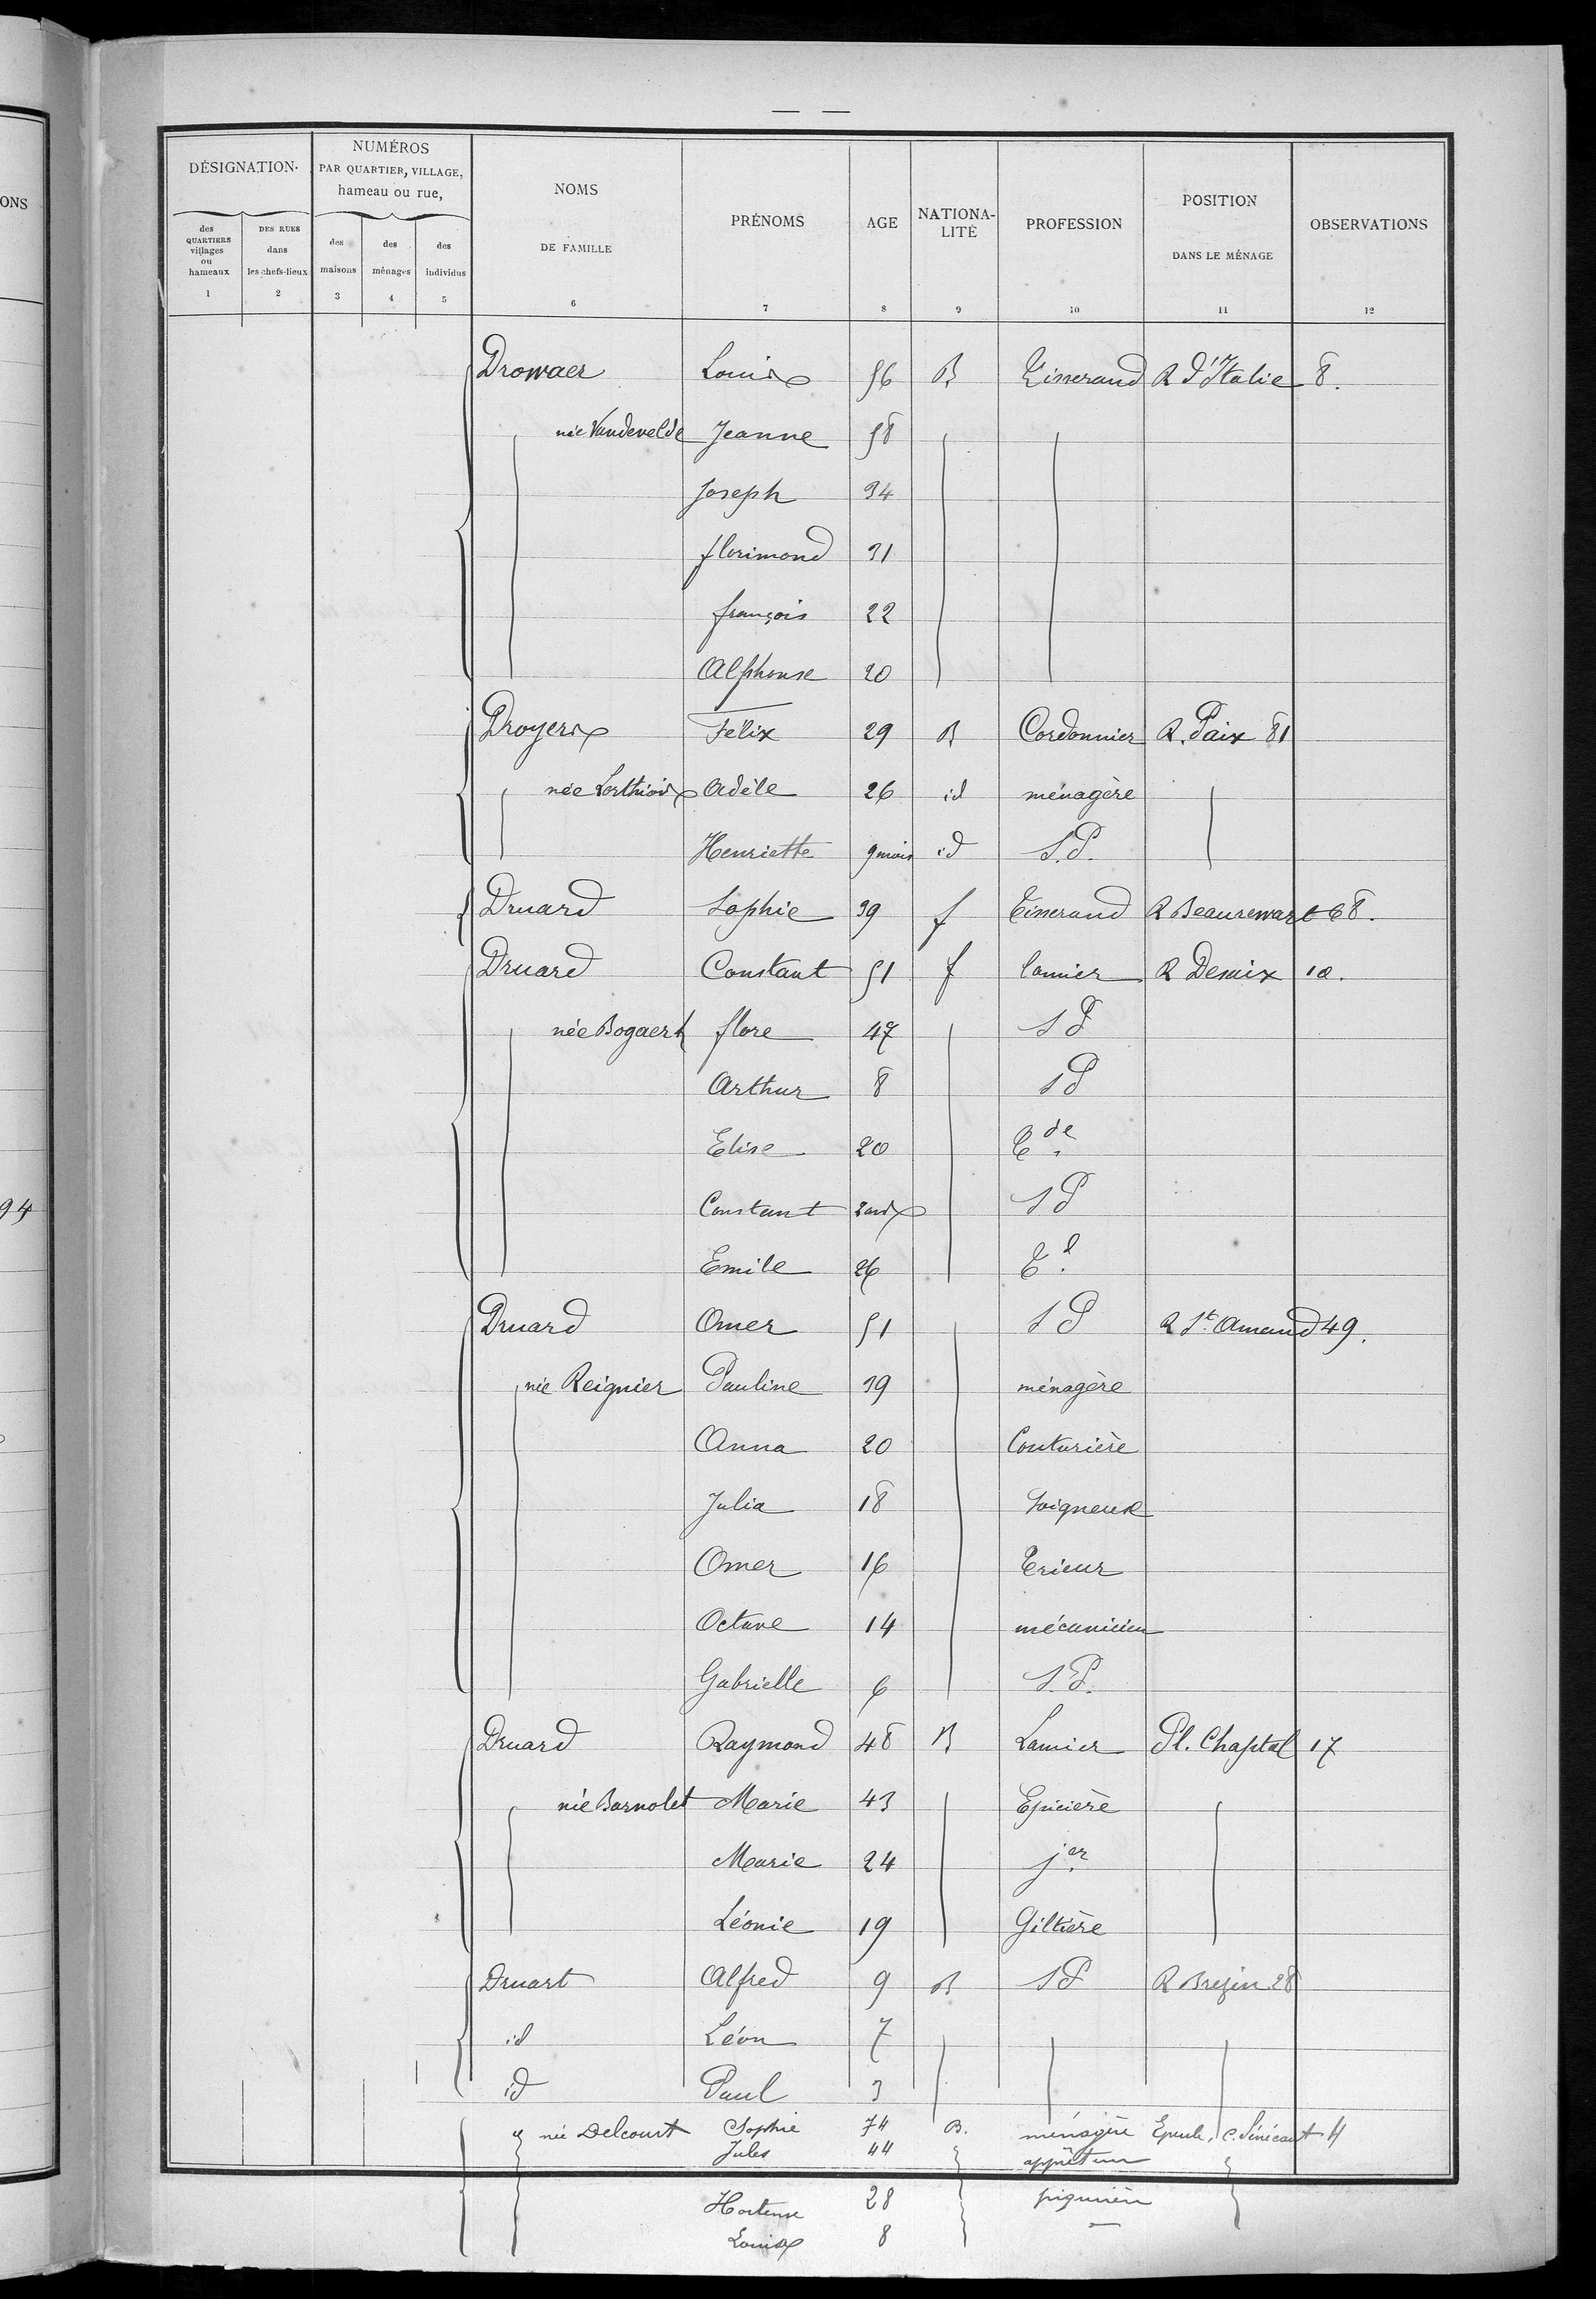 ONS
94
DÉSIGNATION
NUMÉROS PAR QUARTIER, VILLAGE, hameau ou rue,
NOMS DE FAMILLE
PRÉNOMS
AGE
NATIONALITÉ
PROFESSION
POSITION DANS LE MÉNAGE
OBSERVATIONS
des QUARTIERS villages ou hameaux
DES RUES dans les chefs-lieux
des maisons
des ménages
des individus
1 2 3 4 5 6 7 8 9 10 11 12
Drowaer Louis 56 B Tisserand R d'Italie 8.
née Vandevelde Jeanne 58
Joseph 34
florimond 31
françois 22
Alphonse 20
Droyers Félix 29 B Cordonnier R. Paix 81
née Lorthiois Adèle 26 id ménagère
Henriette 9 mois id S.P.
Druard Sophie 39 f Tisserand R Beaurewart 68.
Druard Constant 51 f lamier R Desaix 10.
née Bogaert flore 47 S P
Arthur 8 S P
Elise 20 T de
Constant 2 ans S P
Emile 26 T d.
Druard Omer 51 S P R St. Amand 49.
née Reignier Pauline 39 ménagère
Anna 20 Couturière
Julia 18 Soigneuse
Omer 16 Trieur
Octave 14 mécanicien
Gabrielle 6 S.P.
Druard Raymond 48 B Lamier Pl. Chaptal 17
née Barnolet Marie 43 Epicière
Marie 24 jer
Léonie 19 Giltière
Druart Alfred 9 B S P R Brezin 28
id Léon 7
id Paul 3
" née Delcourt Sophie 74 B. ménagère Epeule, C. Sénécaut 4
Jules 44 apprêteur
Hortense 28 piqurière
Louis 8 —